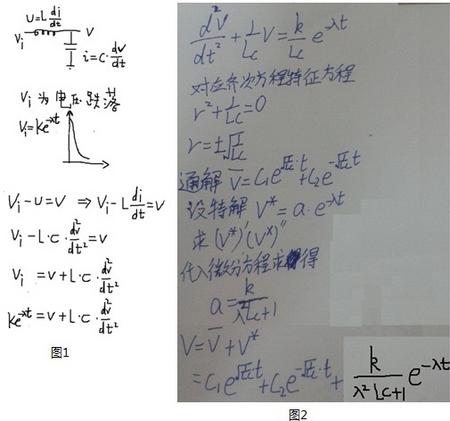 u=L di/dt
Vi
V
i=C·dv/dt
Vi 为电压跌落
Vi=ke^-λt
Vi-u=V ⇒ Vi-L di/dt=V
Vi-L·C·d²v/dt²=V
Vi =V+L·C·d²v/dt²
ke^-λt=V+L·C·d²v/dt²
图1
d²V/dt²+1/LC V=k/LC e^-λt
对应齐次方程特征方程
r²+1/LC=0
r=±√1/LC
通解 V̄=C₁e^√1/LC·t+C₂e^-√1/LC·t
设特解 V*=a·e^-λt
求(V*)'(V*)''
代入微分方程求得
a=k/λ²LC+1
V=V̄+V*
=C₁e^√1/LC t+C₂e^-√1/LC·t+ k/λ²LC+1 e^-λt
图2